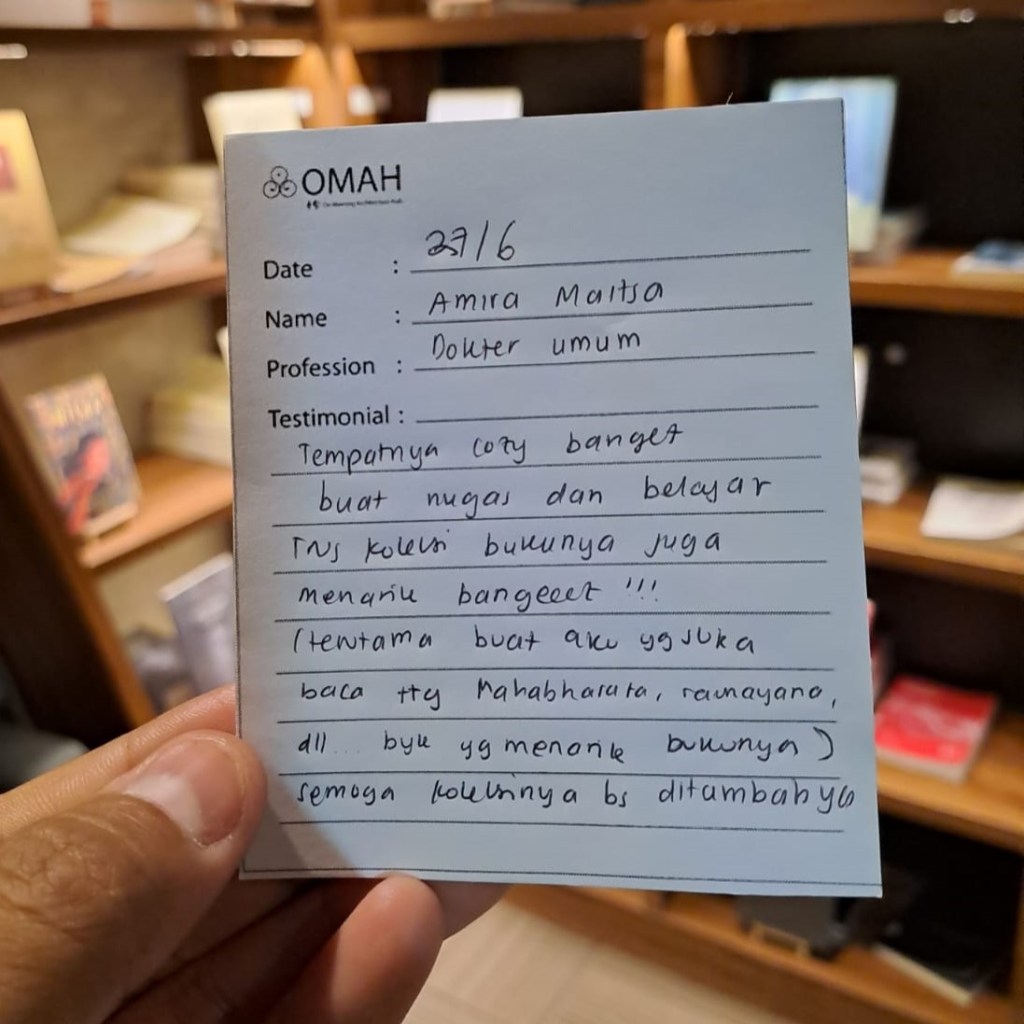 OMAH
Date : 27/6
Name : Amira Maitsa
Profession : Dokter umum
Testimonial :
Tempatnya cozy banget
buat nugas dan belajar
Trus koleksi bukunya juga
menarik bangeeet !!!
(terutama buat aku yg suka
baca ttg Mahabharata, ramayana,
dll... byk yg menarik bukunya)
semoga koleksinya bs ditambah ya